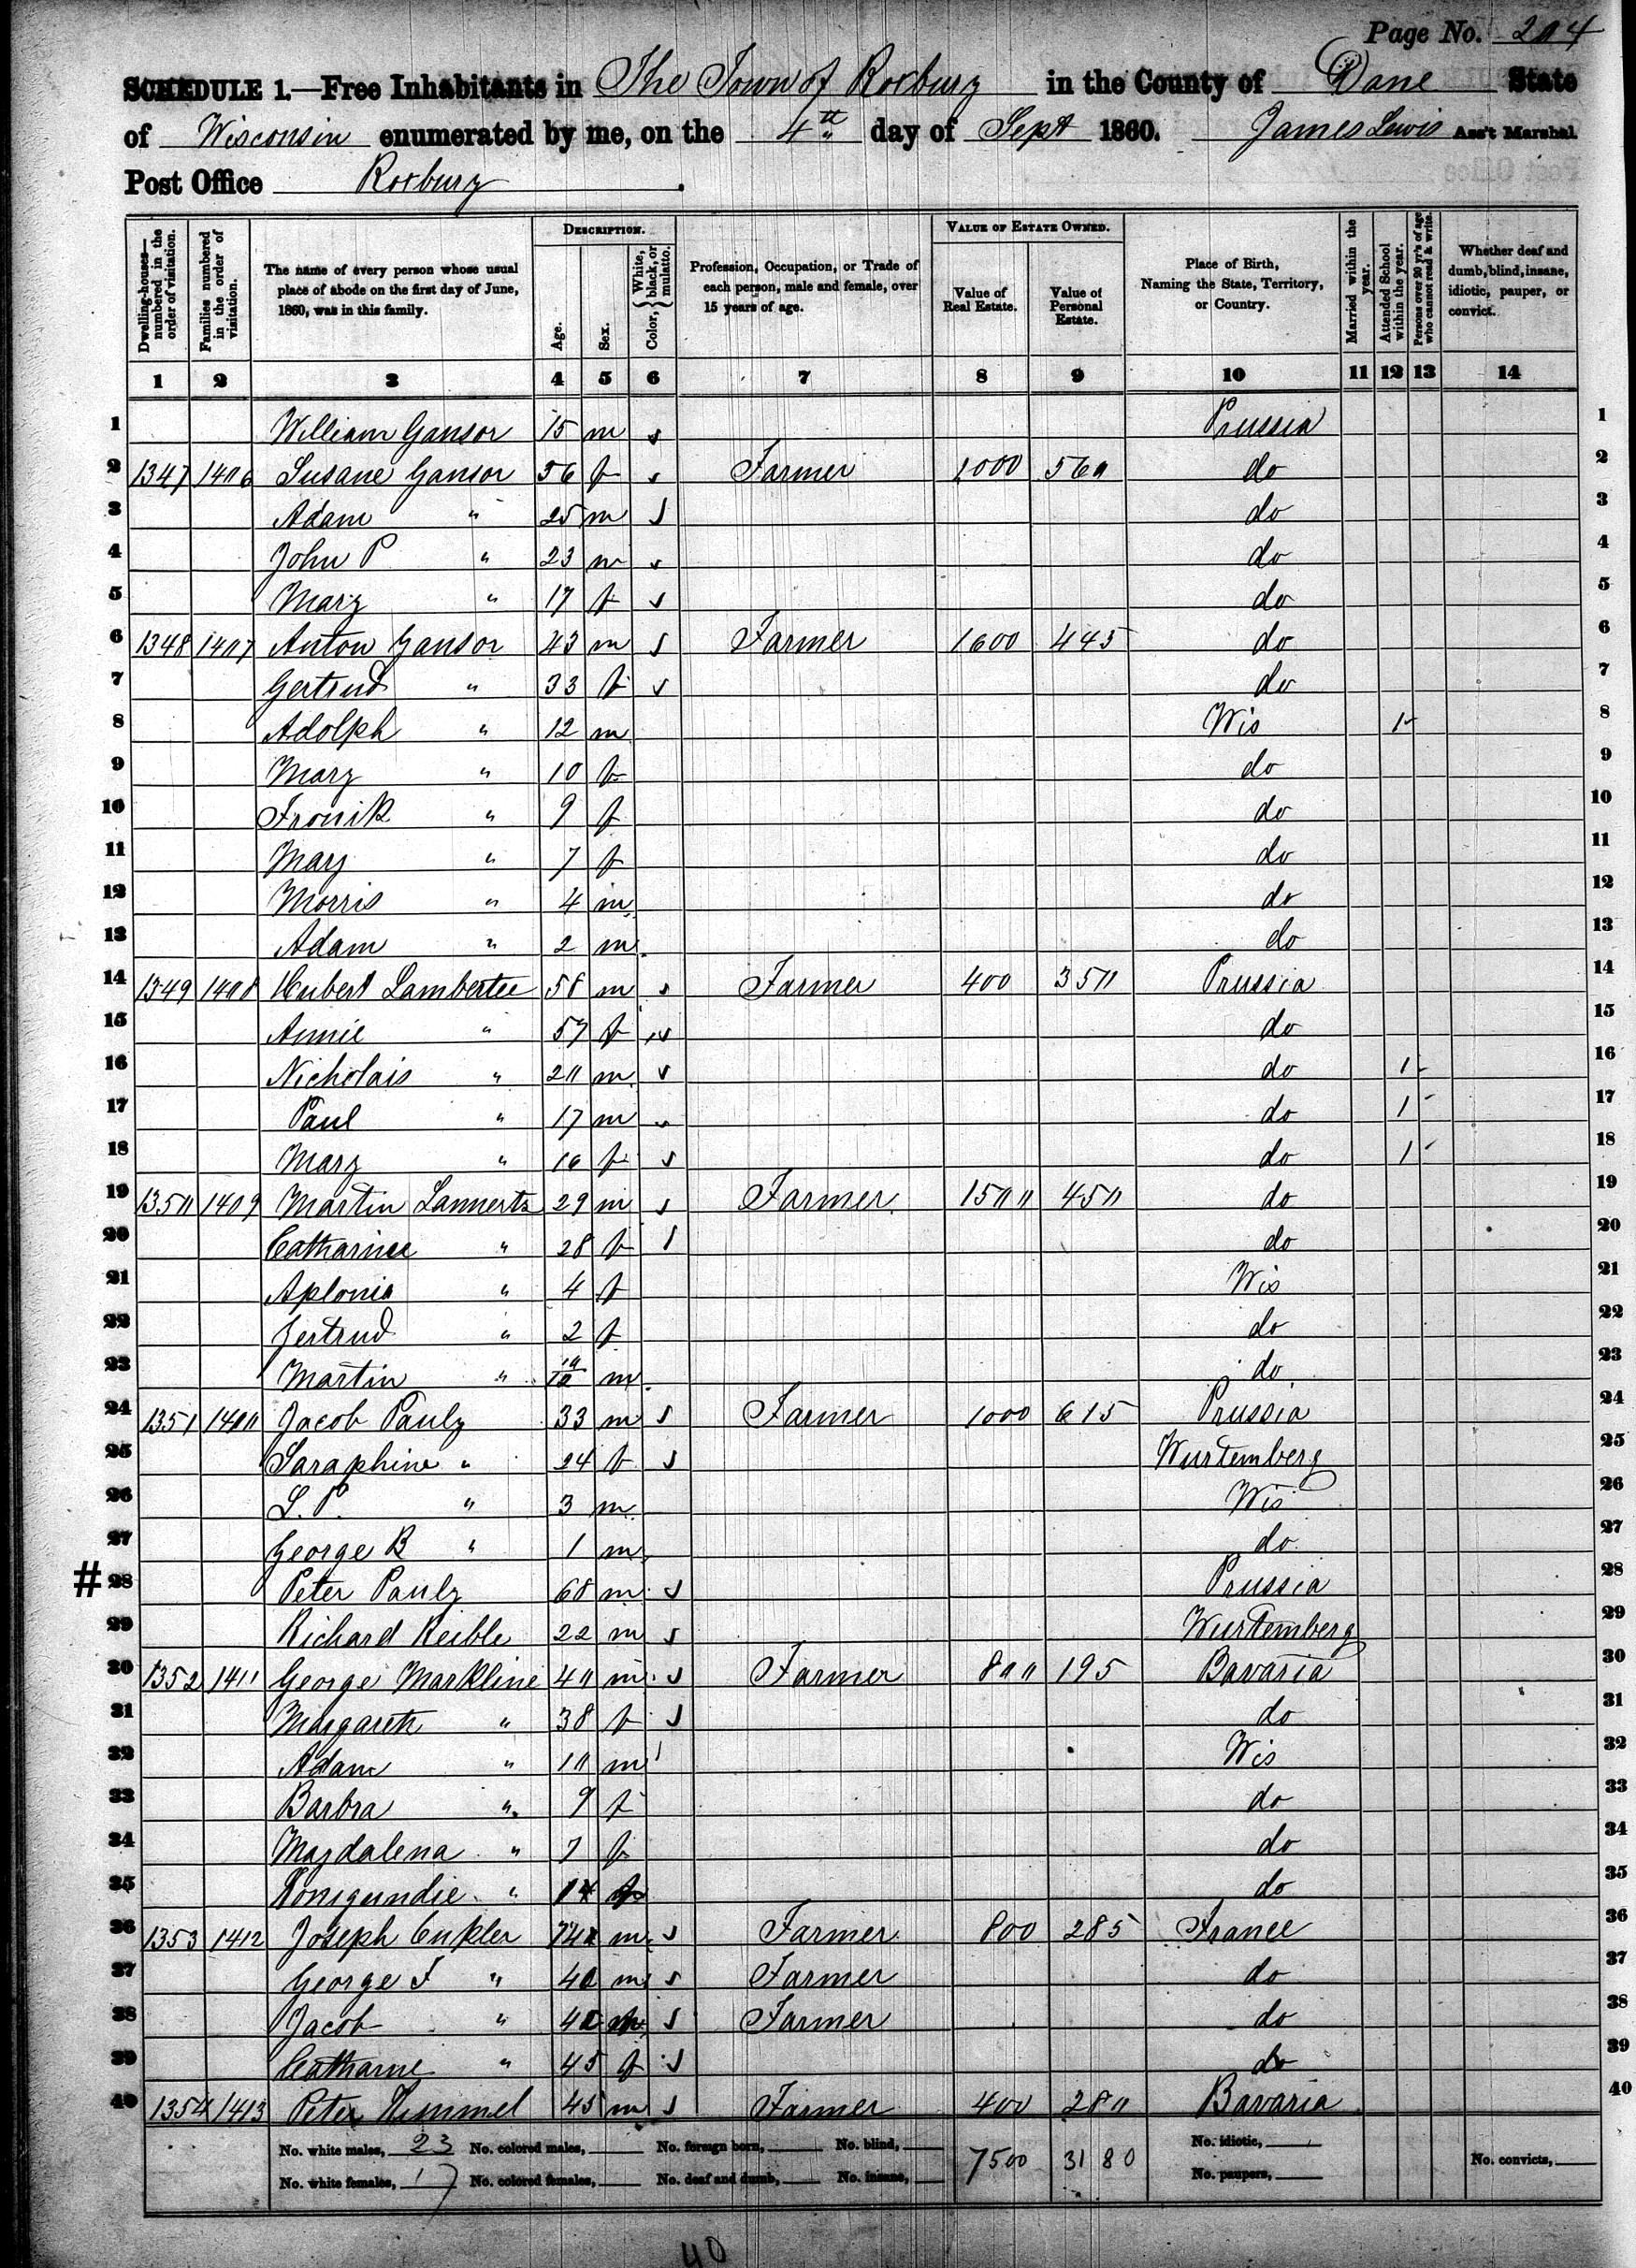 Page No. 204
SCHEDULE 1.—Free Inhabitants in The Town of Roxbury in the County of Dane State
of Wisconsin enumerated by me, on the 4th day of Sept 1860. James Lewis Ass't Marshal.
Post Office Roxbury.
Dwelling-houses—numbered in the order of visitation. Families numbered in the order of visitation. The name of every person whose usual place of abode on the first day of June, 1860, was in this family. DESCRIPTION. Age. Sex. Color, { White, black, or mulatto. Profession, Occupation, or Trade of each person, male and female, over 15 years of age. VALUE OF ESTATE OWNED. Value of Real Estate. Value of Personal Estate. Place of Birth, Naming the State, Territory, or Country. Married within the year. Attended School within the year. Persons over 20 yr's of age who cannot read & write. Whether deaf and dumb, blind, insane, idiotic, pauper, or convict.
1 2 3 4 5 6 7 8 9 10 11 12 13 14
1 William Gansor 15 m Prussia 1
2 1347 1406 Susane Gansor 56 f Farmer 1000 560 do 2
3 Adam " 25 m do 3
4 John P " 23 m do 4
5 Mary " 17 f do 5
6 1348 1407 Anton Gansor 43 m Farmer 1600 445 do 6
7 Gertrud " 33 f do 7
8 Adolph " 12 m Wis 1 8
9 Mary " 10 f do 9
10 Fronik " 9 f do 10
11 Mary " 7 f do 11
12 Morris " 4 m do 12
13 Adam " 2 m do 13
14 1349 1408 Hubert Lambertee 58 m Farmer 400 350 Prussia 14
15 Annie " 57 f do 15
16 Nicholais " 20 m do 1 16
17 Paul " 17 m do 1 17
18 Mary " 16 f do 1 18
19 1350 1409 Martin Lannertz 29 m Farmer 1500 450 do 19
20 Catharine " 28 f do 20
21 Aplonia " 4 f Wis 21
22 Jertrud " 2 f do 22
23 Martin " 10/12 m do 23
24 1351 1400 Jacob Pauly 33 m Farmer 1000 615 Prussia 24
25 Saraphine " 24 f Wurtemberg 25
26 L. P. " 3 m Wis 26
27 George B " 1 m do 27
# 28 Peter Pauly 68 m Prussia 28
29 Richard Keible 22 m Wurtemberg 29
30 1352 1411 George Markline 40 m Farmer 800 195 Bavaria 30
31 Margareth " 38 f do 31
32 Adam " 10 m Wis 32
33 Barbra " 9 f do 33
34 Magdalena " 7 f do 34
35 " f do 35
36 1353 1412 Joseph m Farmer 800 285 France 36
37 George " m Farmer do 37
38 Jacob " m Farmer do 38
39 Catharne " 45 f do 39
40 1354 1413 Peter Kimmel 45 m Farmer 400 280 Bavaria 40
No. white males, 23 No. colored males, No. foreign born, No. blind, 7500 3180 No. idiotic,
No. white females, 17 No. colored females, No. deaf and dumb, No. insane, No. paupers, No. convicts,
40